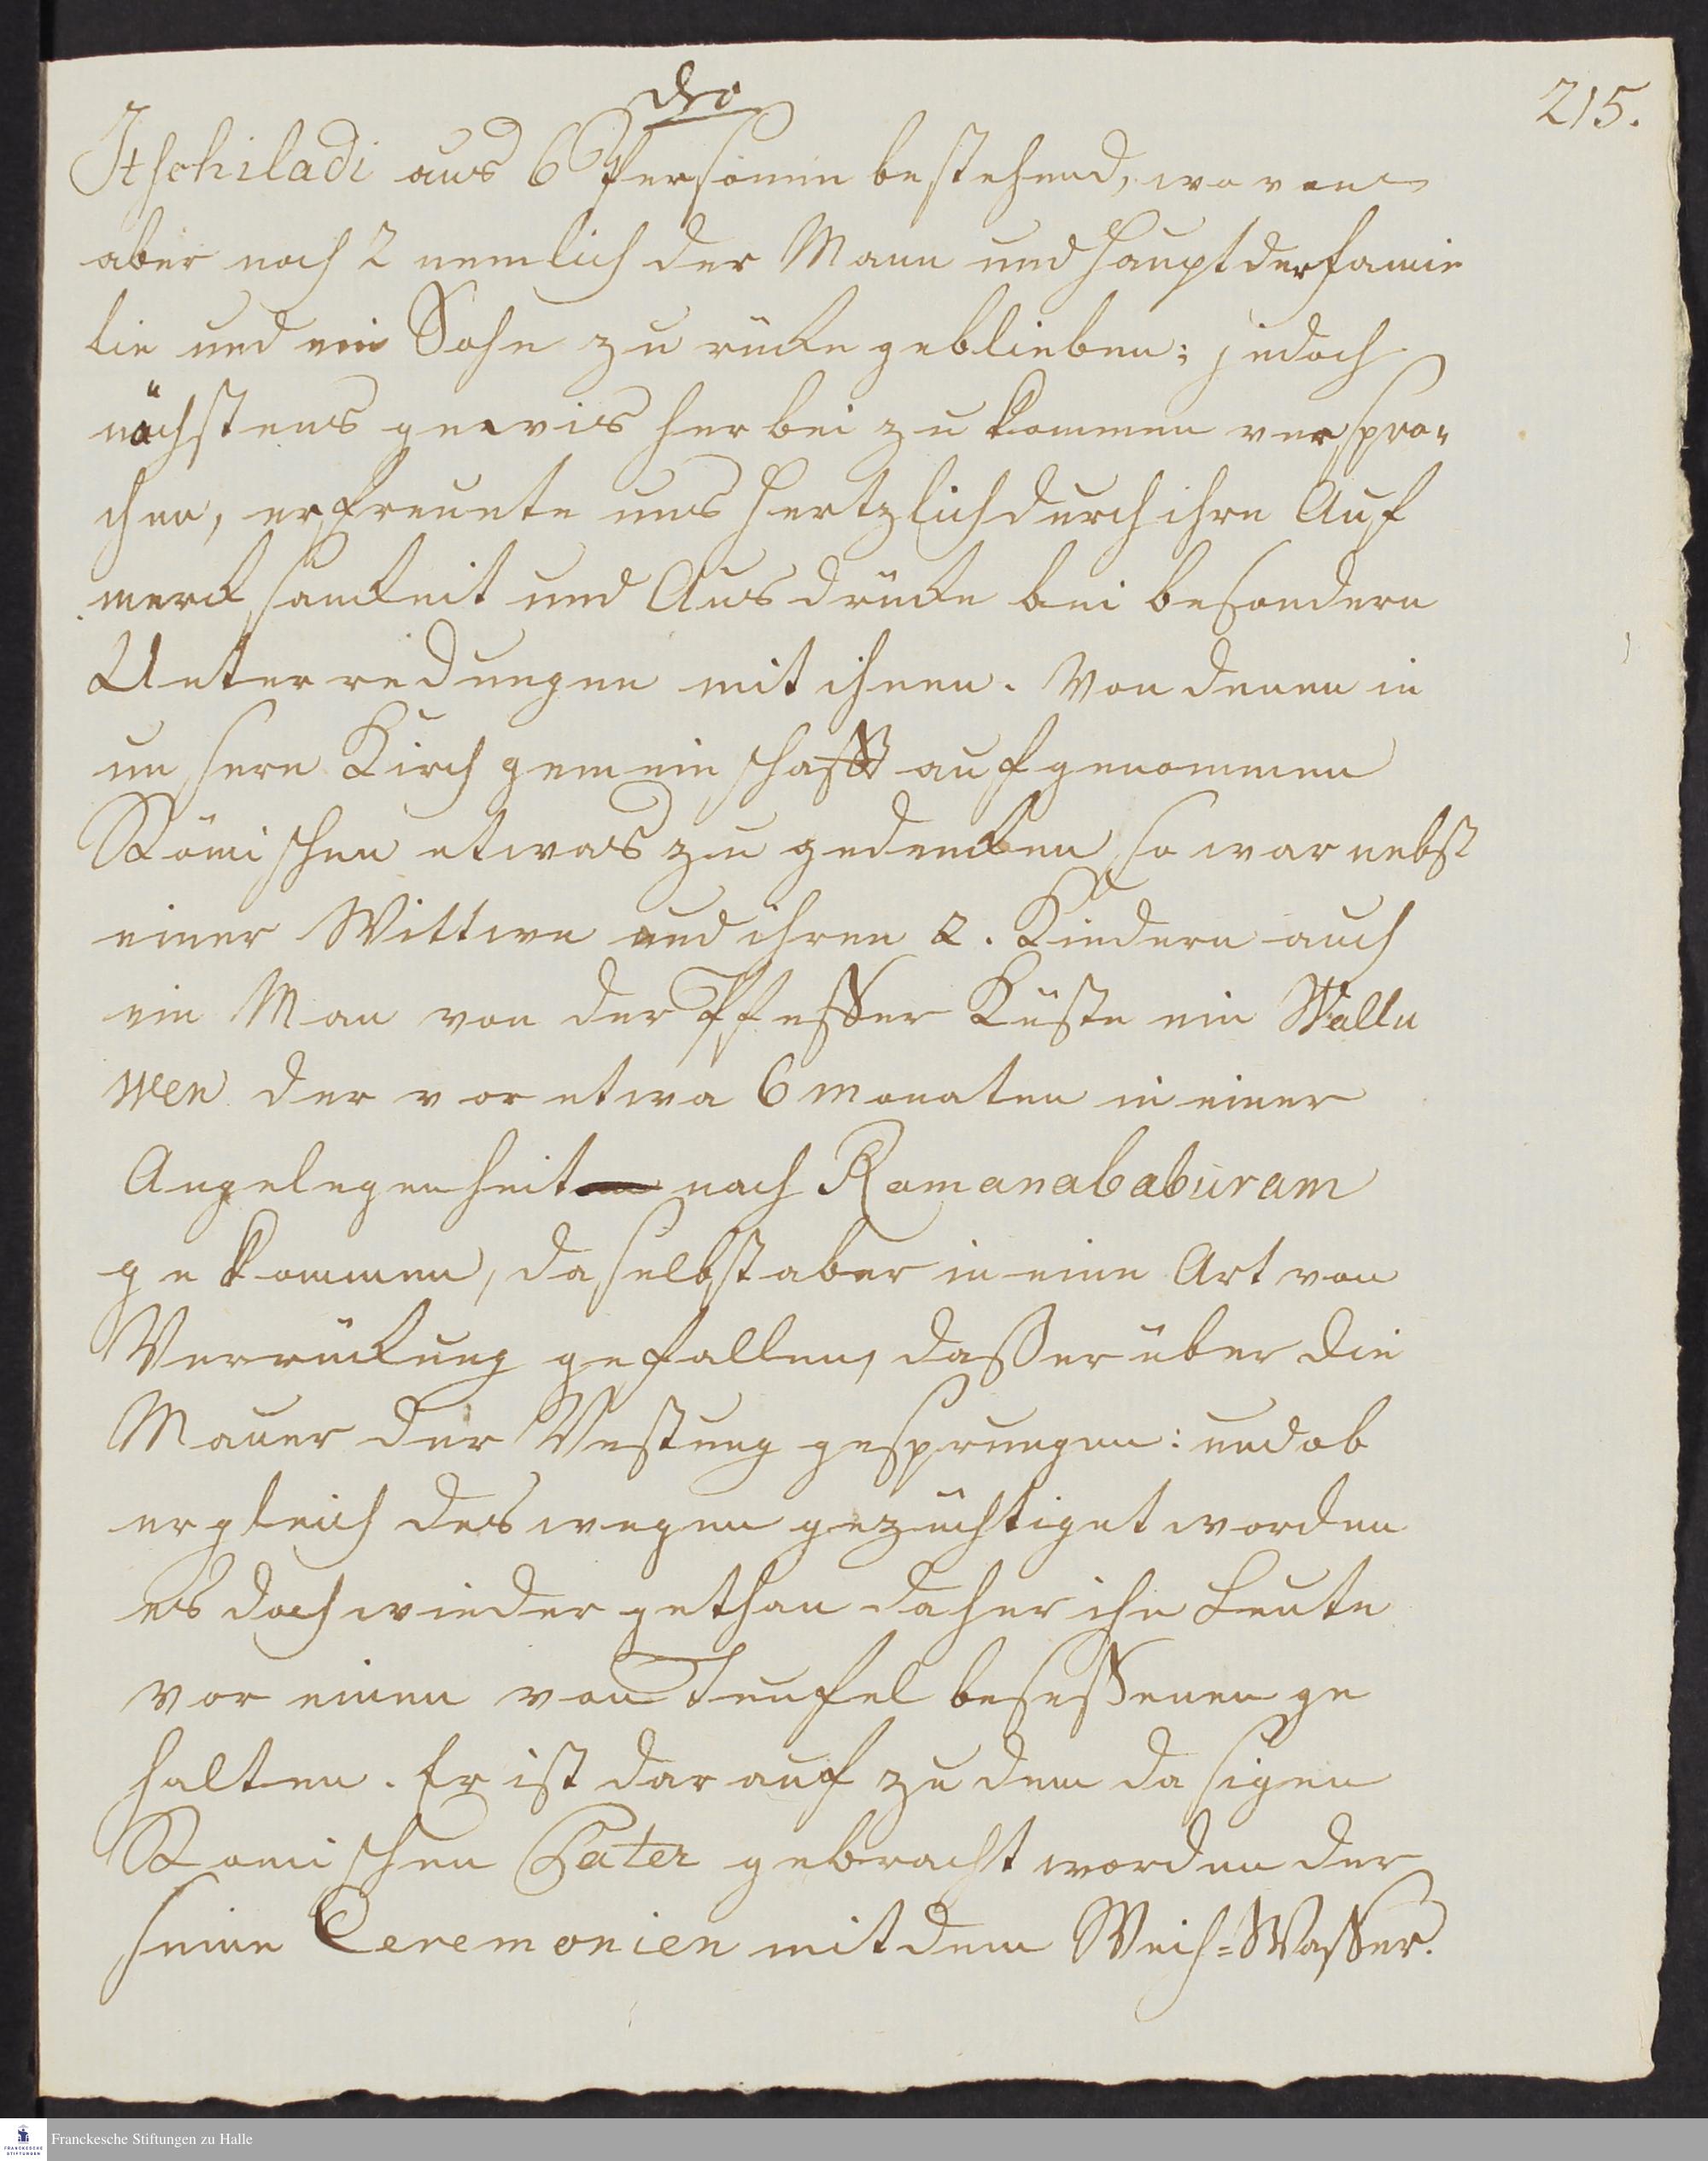 215.
Itschiladi aus 6 Personen bestehend, wovon
aber noch 2 nemlich der Mann und Haupt der Famie
lie und ein Sohn zu rücke geblieben; jedoch
nächstens gewis herbei zu kommen verspro-
chen, erfreuete uns hertzlich durch ihre Auf
mercksamkeit und Ausdrücke bei besondern
Unterredungen mit ihnen. Von denen in
unsere Kirchgemeinschafft aufgenommen
Römischen etwas zu gedencken so war nebst
einer Wittwe und ihren 2. Kindern auch
ein Man von der Pfeffer Küste ein Wallu
wen der vor etwa 6 monaten in einer
Angelegenheit nach Ramanababuram
gekommen, daselbst aber in eine Art von
Verrückung gefallen, daß er über die
Mauer der Vestung gesprungen: und ob
er gleich deswegen gezüchtiget worden
es doch wieder gethan daher ihn Leute
vor einen von Teufel beseßenen ge
halten. Er ist darauf zu dem dasigen
Römischen Pater gebracht worden der
seine Ceremonien mit dem Weih-Waßer.
Franckesche Stiftungen zu Halle
FRANCKESCHE
STIFTUNGEN